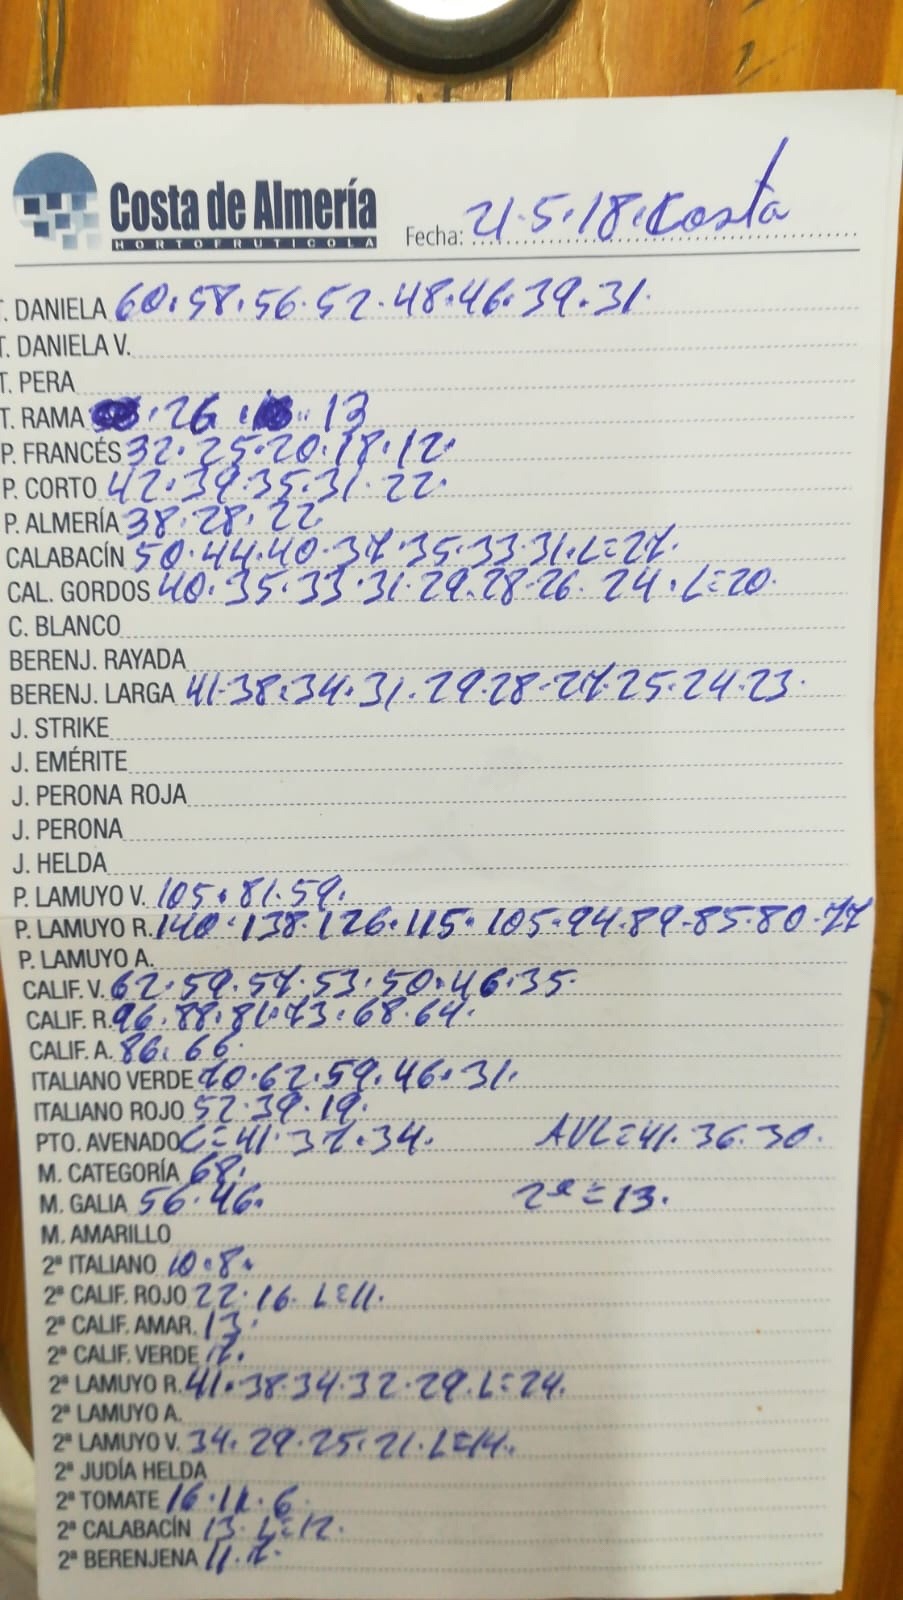 Costa de Almería
HORTOFRUTICOLA
Fecha: 21.5.18. Costa
T. DANIELA 60.58.56.52.48.46.39.31.
T. DANIELA V.
T. PERA
T. RAMA .26. 13
P. FRANCÉS 32.25.20.18.12.
P. CORTO 42.39.35.31.22.
P. ALMERÍA 38.28.22.
CALABACÍN 50.44.40.37.35.33.31.L=27.
CAL. GORDOS 40.35.33.31.29.28.26.24.L=20.
C. BLANCO
BERENJ. RAYADA
BERENJ. LARGA 41.38.34.31.29.28.27.25.24.23.
J. STRIKE
J. EMÉRITE
J. PERONA ROJA
J. PERONA
J. HELDA
P. LAMUYO V. 105.81.59.
P. LAMUYO R. 140.138.126.115.105.94.89.85.80.77
P. LAMUYO A.
CALIF. V. 62.59.57.53.50.46.35.
CALIF. R. 96.88.81.73.68.64.
CALIF. A. 86.66.
ITALIANO VERDE 70.62.59.46.31.
ITALIANO ROJO 52.39.19.
PTO. AVENADO C=41.37.34. AVL=41.36.30.
M. CATEGORÍA 68.
M. GALIA 56.46. 2ª=13.
M. AMARILLO
2ª ITALIANO 10.8.
2ª CALIF. ROJO 22.16.L=11.
2ª CALIF. AMAR. 13.
2ª CALIF. VERDE
2ª LAMUYO R. 41.38.34.32.29.L=24.
2ª LAMUYO A.
2ª LAMUYO V. 34.29.25.21.L=14.
2ª JUDÍA HELDA
2ª TOMATE 16.11.6.
2ª CALABACÍN 13.L=12.
2ª BERENJENA 11.7.